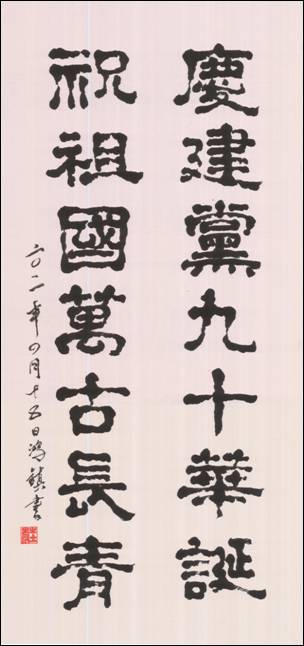 慶建黨九十華誕
祝祖國萬古長青
二〇一一年四月十五日鴻鎮書